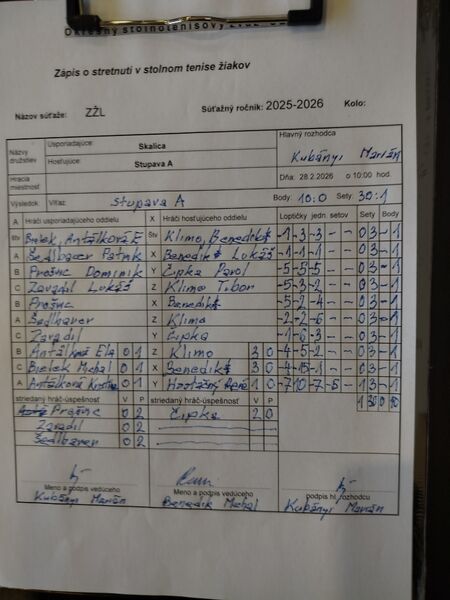 Okresný stolnotenisový zväz
Zápis o stretnutí v stolnom tenise žiakov
Názov súťaže: ZŽL Súťažný ročník: 2025-2026 Kolo:
Názvy družstiev Usporiadajúce: Skalica Hlavný rozhodca
Hosťujúce: Stupava A Kubányi Marián
Hracia miestnosť Dňa: 28.2.2026 o 10:00 hod.
Výsledok Víťaz: Stupava A Body: 10:0 Sety: 30:1
A Hráči usporiadajúceho oddielu X Hráči hosťujúceho oddielu Loptičky jedn. setov Sety Body
Štv Bielek, Antálková E Štv Klimo, Benedik -1 -3 -3 - - 0 3 - 1
A Sedlbauer Patrik X Benedik Lukáš -1 -1 -1 - - 0 3 - 1
B Prošuc Dominik Y Čipka Pavol -5 -5 -5 - - 0 3 - 1
C Zavadil Lukáš Z Klimo Tibor - - 0 3 - 1
B Prošuc X Benedik -5 -2 -4 - - 0 3 - 1
A Z Klimo -2 -2 -6 - - 0 3 - 1
C Zavadil Y Čipka -1 -6 -3 - - 0 3 - 1
B Antálková Ela 0 1 Z Klimo 3 0 -4 -5 -2 - - 0 3 - 1
C Bielek Michal 0 1 X Benedik 3 0 - - 0 3 - 1
A Antálková 0 1 Y 0 1 -7 10 -7 -5 - 1 3 - 1
striedaný hráč-úspešnosť V P striedaný hráč-úspešnosť V P 1 30 0 10
Prošuc 0 2 Čipka 2 0
Zavadil 0 2
0 2
Meno a podpis vedúceho Meno a podpis vedúceho podpis hl. rozhodcu
Kubányi Marián Benedik Michal Kubányi Marián